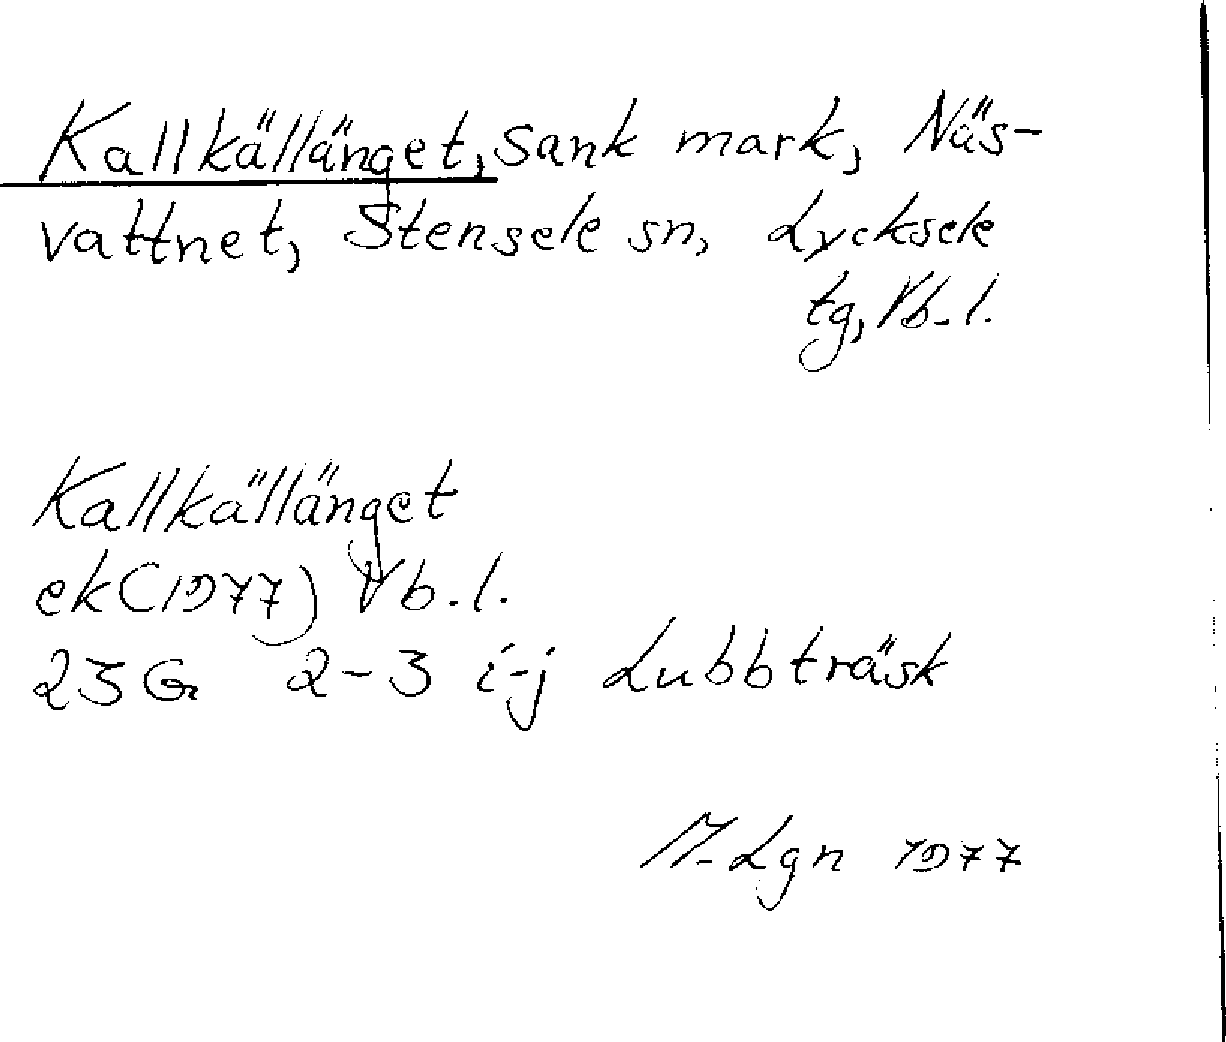 Kallkällänget, sank mark, Näs-
vattnet, Stensele sn, Lycksele
tg, Vb. l.
Kallkällänget
ek (1977) Vb. l.
23 G 2-3 i-j Lubbträsk
M. Lgn 1977